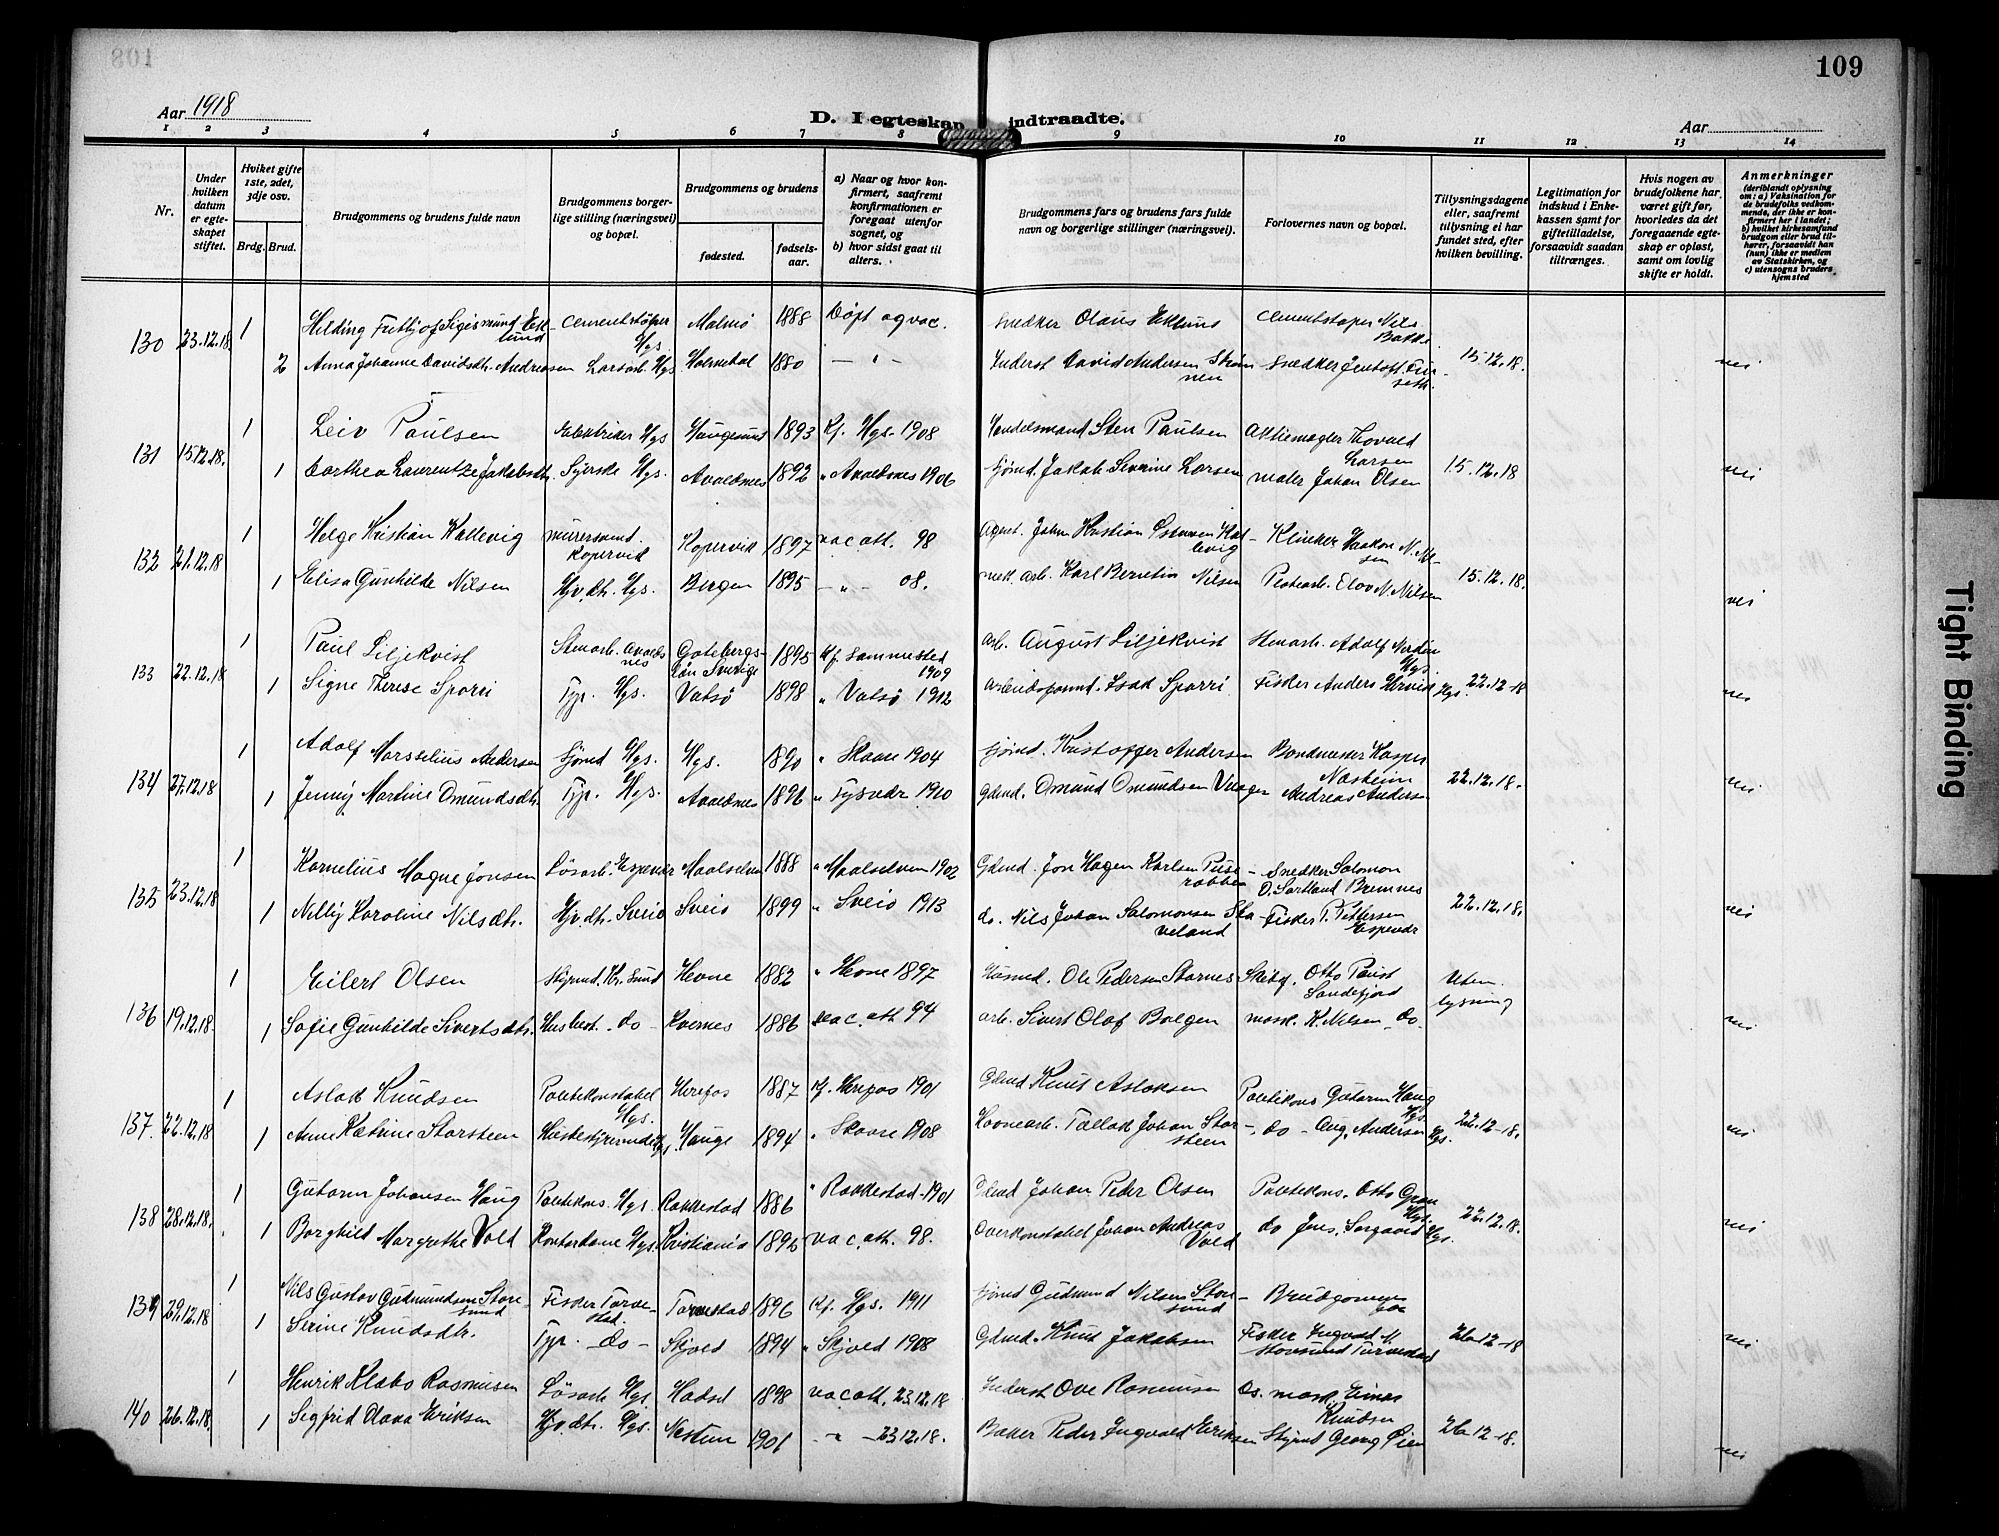 108
109
Aar 1918
D. I egteskap indtraadte.
Aar
1 2 3 4 5 6 7 8 9 10 11 12 13 14
Nr.
Under hvilken datum er egteskapet stiftet.
Hviket gifte 1ste, 2det, 3dje osv.
Brdg. Brud.
Brudgommens og brudens fulde navn
Brudgommens borgerlige stilling (næringsvei) og bopæl.
Brudgommens og brudens
fødested.
fødselsaar.
a) Naar og hvor konfirmert, saafremt konfirmationen er foregaat utenfor sognet, og
b) hvor sidst gaat til alters.
Brudgommens fars og brudens fars fulde navn og borgerlige stillinger (næringsvei).
Forlovernes navn og bopæl.
Tillysningsdagene eller, saafremt tillysning ei har fundet sted, efter hvilken bevilling.
Legitimation for indskud i Enkekassen samt for giftetilladelse, forsaavidt saadan tiltrænges.
Hvis nogen av brudefolkene har været gift før, hvorledes da det foregaaende egteskap er opløst, samt om lovlig skifte er holdt.
Anmerkninger
(deriblandt oplysning om: a) Vaksination for de brudefolks vedkommende, der ikke er konfirmert her i landet; b) hvilket kirkesamfund brudgom eller brud tilhører, forsaavidt han (hun) ikke er medlem av Statskirken, og c) utensogns bruders hjemsted
130 23.12.18. 1 Hilding Fritjof Sigismund Eklund Cementstøper Hgs. Malmø 1888 Døpt og vac. Snedker Olaus Eklund Cementstøper Nils Bakke
2 Anna Johanne Davidsdt. Andreasen Løsarb. Hgs 1880 — " — Inderst David Andersen 15.12.18. nei
131 15.12.18. 1 Leiv Paulsen Elektriker Hgs Haugesund 1893 Kf. Hgs. 1908 Handelsmand Sten Paulsen Aktiemægler Thorvald Larsen
1 Dorthea Laurentze Jakobsdt. Syerske Hgs. Avaldsnes 1892 " Avaldsnes 1906 Sjømd. Jakob Severine Larsen maler Johan Olsen 15.12.18 nei
132 21.12.18 1 Helge Kristian Kallevig murersvend. Kopervik Kopervik 1897 vac att. 98 Agent. John Kristian Kallevig Klinker Haakon N. Nilsen
1 Elisa Gunhilde Nilsen Hjv.dt. Hgs. Bergen 1895 — " — 08. mek. arb. Karl Berntin Nilsen Elov N. Nilsen 15.12.18. nei
133 22.12.18 1 Paul Liljekvist Stenarb. Avaldsnes Gøtebergs-Län Sverige 1895 Kf. sammested 1909 arb. August Liljekvist Stenarb. Adolf Hgs.
1 Signe Therese Sporri Tjp. Hgs. Vatsø 1898 " Vatsø 1912 arbeidsformd. Isak Sporri. Fisker Anders Hgs. 22.12-18 nei
134 27.12.18 1 Adolf Marselius Andersen Sjømd Hgs. Hgs. 1890 " Skaare 1904 Sjømd. Kristoffer Andersen Kasper Næsheim
1 Jenny Martine Omundsdt. Tjp. Hgs. Avaldsnes 1896 " Tysvær 1910 Gdmd. Omund Omundsen Andreas Andersen 22.12.18. nei
135 23.12.18 1 Kornelius Magne Jonsen Løsarb. Espevær Maalselven 1888 " Maalselven 1902 Gdmd. Jon Hagen Karlsen Snedker Salomon O. Sortland Bremnes
1 Nelly Karoline Nilsdt. Hjv.dt. Sveio Sveio 1899 " Sveio 1913 do. Nils Johan Salomonsen Fisker P. Pettersen Espevær 22.12.18. nei
136 19.12.18. 1 Eilert Olsen Styrmd. Kr. Sund Hevne 1882 " Hevne 1897 Husmd. Ole Pedersen Starnes Skibsf. Otto Sandefjord Uten lysning
1 Sofie Gunhilde Sivertsdt. Husbest. - do - Kvernes 1886 vac. att 94 arb. Sivert Olaf Bolgen mask. K. Nilsen - do nei
137. 22.12.18 1 Aslak Knudsen Politikonstabel Hgs. Herefos 1887 Kf. Herefos 1901 Gdmd Knut Aslaksen Politikons Gutorm Haug Hgs.
1 Anne Katrine Storsteen Husbestyrerinde Hgs. Hauge 1894 " Skaare 1908 Havnearb. Tallak Johan Storsteen - do - Aug. Andersen Hgs. 22.12-18. nei
138 28.12.18. 1 Gutorm Johansen Haug Politikons. Hgs. Rakkestad 1886 " Rakkestad - 1901 Gdmd Johan Peder Olsen Politikons. Otto Gran Hgs.
1 Borghild Margrethe Vold Kontordame Hgs. Kristiania 1896 vac. att. 98. Overkonstabel Johan Andreas Vold do Jens. Sørgaard Hgs. 22.12.18. nei
139 29.12.18 1 Nils Gustav Gudmundsen Storesund Fisker Torvestad. Torvestad 1896 Kf. Hgs. 1911 Sjømd Gudmund Nilsen Storesund Brudgommens far
1 Serine Knudsdt. Tjp. - do - Skjold 1894 " Skjold 1908 Gdmd. Knut Jakobsen Fisker Ingvald M. Storesund Torvestad 26-12-18 nei
140 26.12.18. 1 Henrik Klabo Rasmusen Løsarb. Hgs. Hadsel 1898 vac att. 23.12.18 Inderst Ove Rasmusen Os. mask. Einar Knudsen
1 Sigfrid Olava Eriksen Hjv.dt. Hgs. Nestun 1901 — " — 23.12.18. Baker Peder Ingvald Eriksen Styrmd Georg Øien 26-12-18. nei
Tight Binding